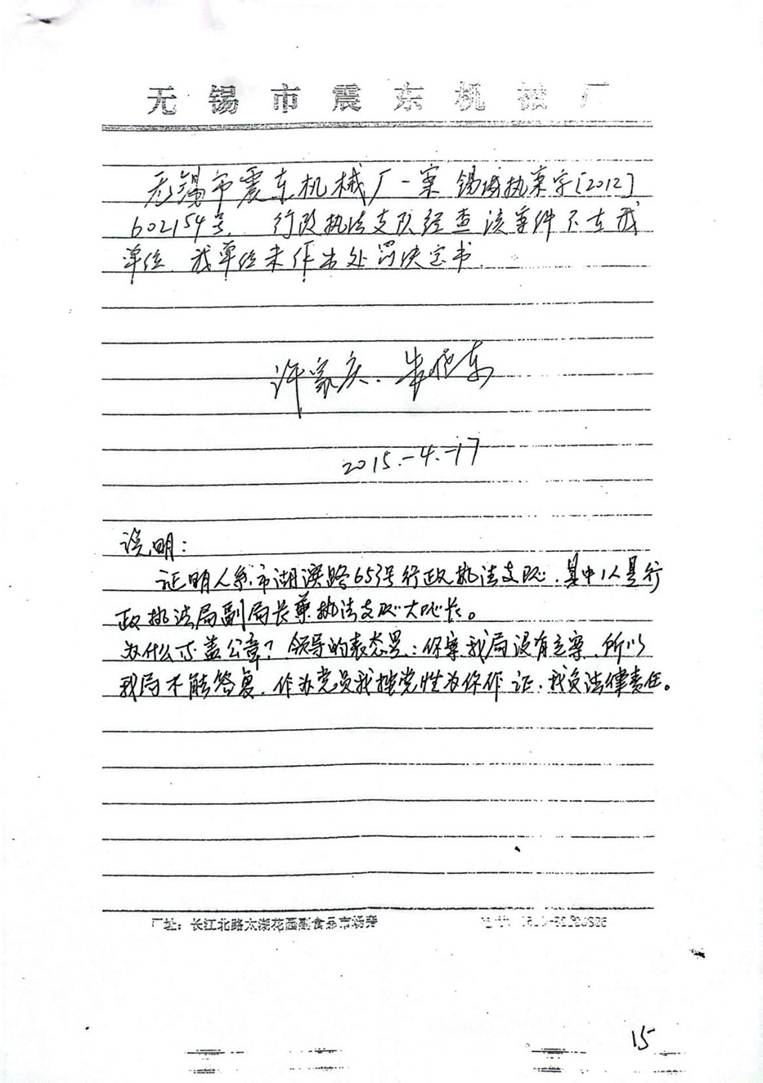 无锡市震东机械厂
无锡市震东机械厂一案 锡城执案字[2012]
602154号. 行政执法支队经查该案件不在我
单位. 我单位未作出处罚决定书.
许家庆.
2015.-4.-17
说明:
证明人系市湖滨路653号行政执法支队. 其中1人是行
政执法局副局长兼执法支队大队长。
为什么不盖公章? 领导的表态是: 你案我局没有立案. 所以
我局不能答复. 作为党员我按党性为你作证. 我负法律责任。
厂址: 长江北路太湖花园副食品市场旁
15